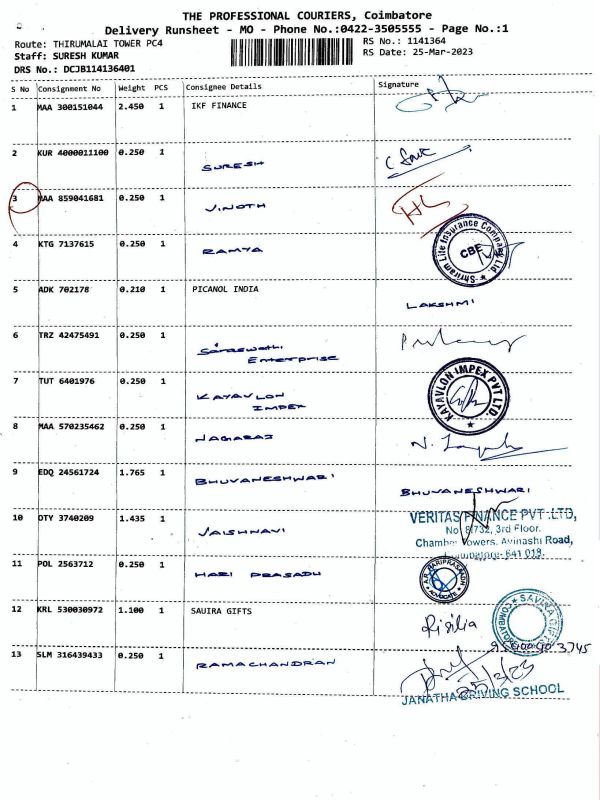 THE PROFESSIONAL COURIERS, Coimbatore
Delivery Runsheet - MO - Phone No.:0422-3505555 - Page No.:1
Route: THIRUMALAI TOWER PC4
RS No.: 1141364
Staff: SURESH KUMAR
RS Date: 25-Mar-2023
DRS No.: DCJB114136401
S No Consignment No Weight PCS Consignee Details Signature
1 MAA 300151044 2.450 1 IKF FINANCE
2 KUR 4000011100 0.250 1
SURESH
3 MAA 859041681 0.250 1
VINOTH
4 KTG 7137615 0.250 1
RAMYA
Shriram Life Insurance Company Ltd.
CBE
5 ADK 702178 0.210 1 PICANOL INDIA
LAKSHMI
6 TRZ 42475491 0.250 1
Saraswathi
Enterprise
7 TUT 6401976 0.250 1
KAYAVLON
IMPEX
KAYAVLON IMPEX PVT LTD.
8 MAA 570235462 0.250 1
NAGARAJ
9 EDQ 24561724 1.765 1
BHUVANESHWARI
BHUVANESHWARI
10 OTY 3740209 1.435 1
VAISHNAVI
VERITAS FINANCE PVT.LTD,
No 8/732, 3rd Floor.
Chamber Towers, Avinashi Road,
Coimbatore- 641 018.
11 POL 2563712 0.250 1
HARI PRASADU
A.R. HARIPRASADH
ADVOCATE
12 KRL 530030972 1.100 1 SAUIRA GIFTS
13 SLM 316439433 0.250 1
RAMACHANDRAN
JANATHA DRIVING SCHOOL